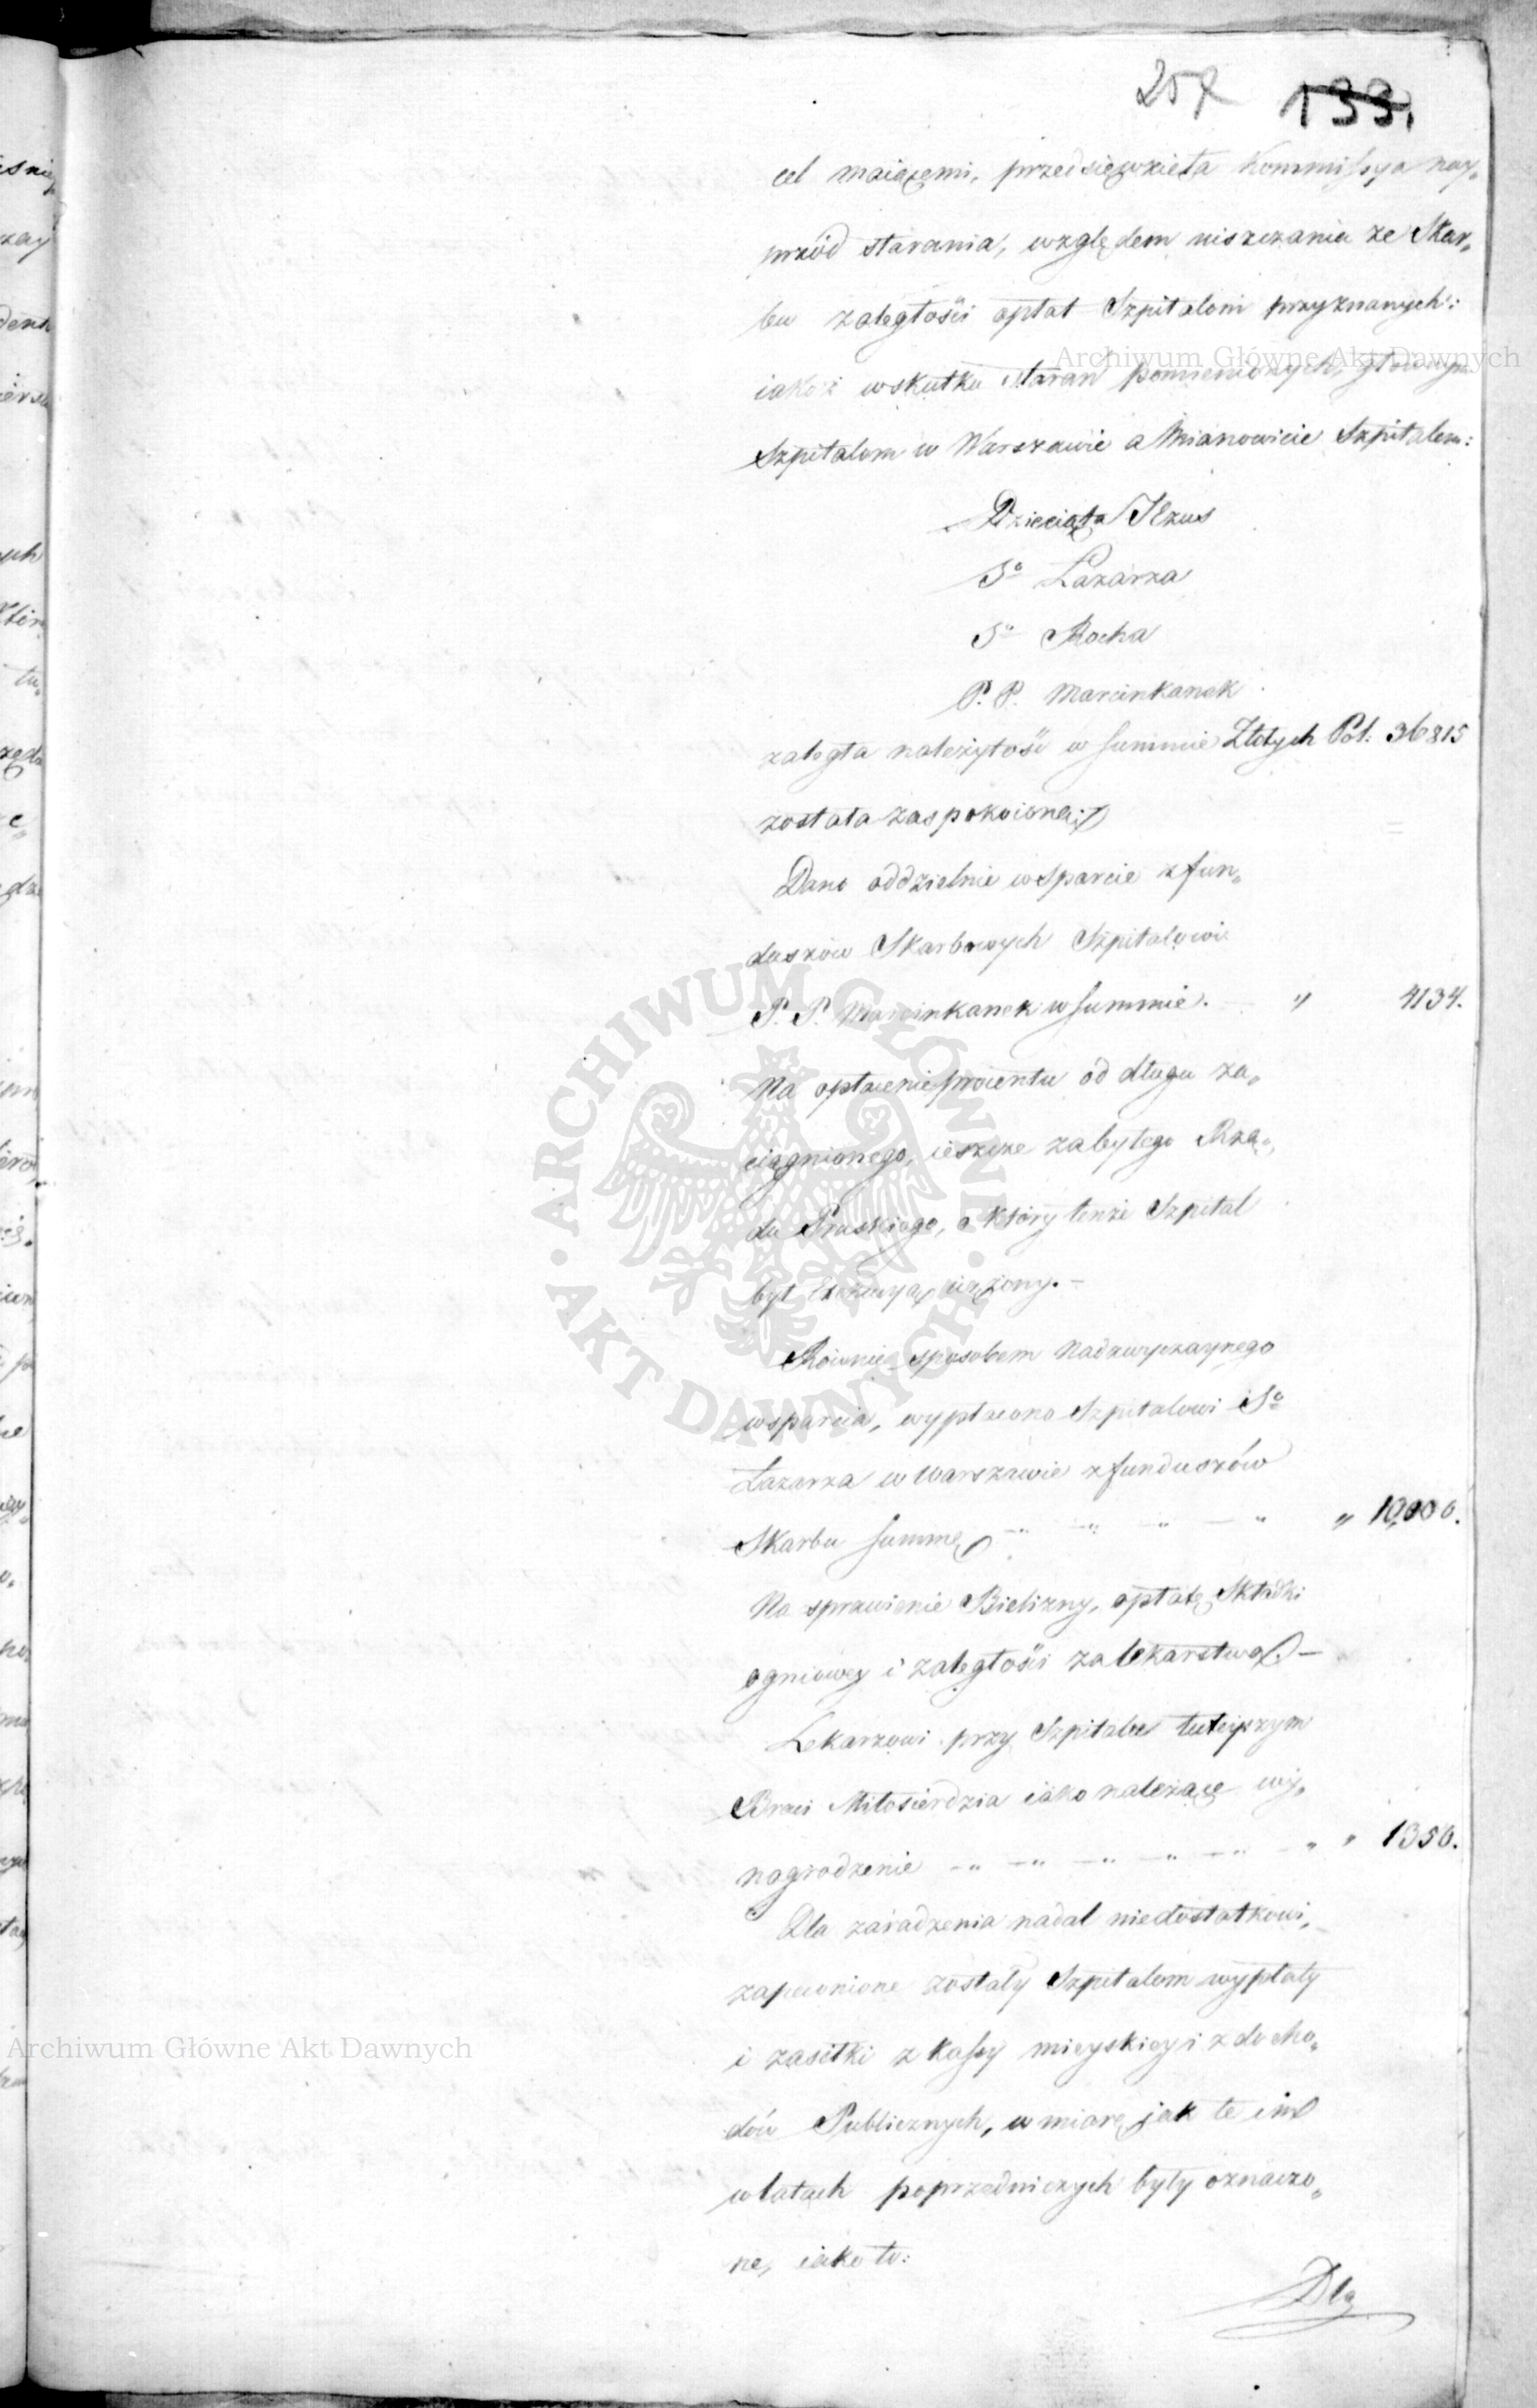 257 133.
cel maiącemi, przedsięwzięła Kommissya nay„
przód starania, względem uiszczania ze Skar„
bu zaległości opłat Szpitalom przyznanych:
iakoż w skutku staran pomienionych, głownym
Szpitalom w Warszawie a Mianowicie Szpitalom:
Dzieciątka Jezus
So Łazarza
So Rocha
P. P. Marcinkanek
zaległa należytość w summie Złotych Pol: 36815
została zaspokoiona;
Dano oddzielnie wsparcie z fun„
duszów Skarbowych Szpitalowi
P. P. Marcinkanek w summie. — „ 4134.
Na opłacenie procentu od długu za„
ciągnionego, ieszcze za bytego Rzą„
du Pruskiego, o który tenże Szpital
był Exekucyą ciążony. —
Równie sposobem Nadzwyczaynego
wsparcia, wypłacono Szpitalowi So
Łazarza w Warszawie z funduszów
Skarbu summę — „ — „ — „ — „ „ 10,000.
Na sprawienie Bielizny, opłatę Składki
ogniowey i zaległości za lekarstwa. —
Lekarzowi przy Szpitalu tuteyszym
Braci Miłosierdzia iako należące wy„
nagrodzenie — „ — „ — „ — „ — „ — „ „ 1350.
Dla zaradzenia nadal niedostatkowi,
zapewnione zostały Szpitalom wypłaty
i zasiłki z kassy mieyskiey i z docho„
dów Publicznych, w miarę jak te im
w latach poprzedniczych były oznaczo„
ne, iako to:
Dla
Archiwum Główne Akt Dawnych
ARCHIWUM GŁÓWNE AKT DAWNYCH
Archiwum Główne Akt Dawnych